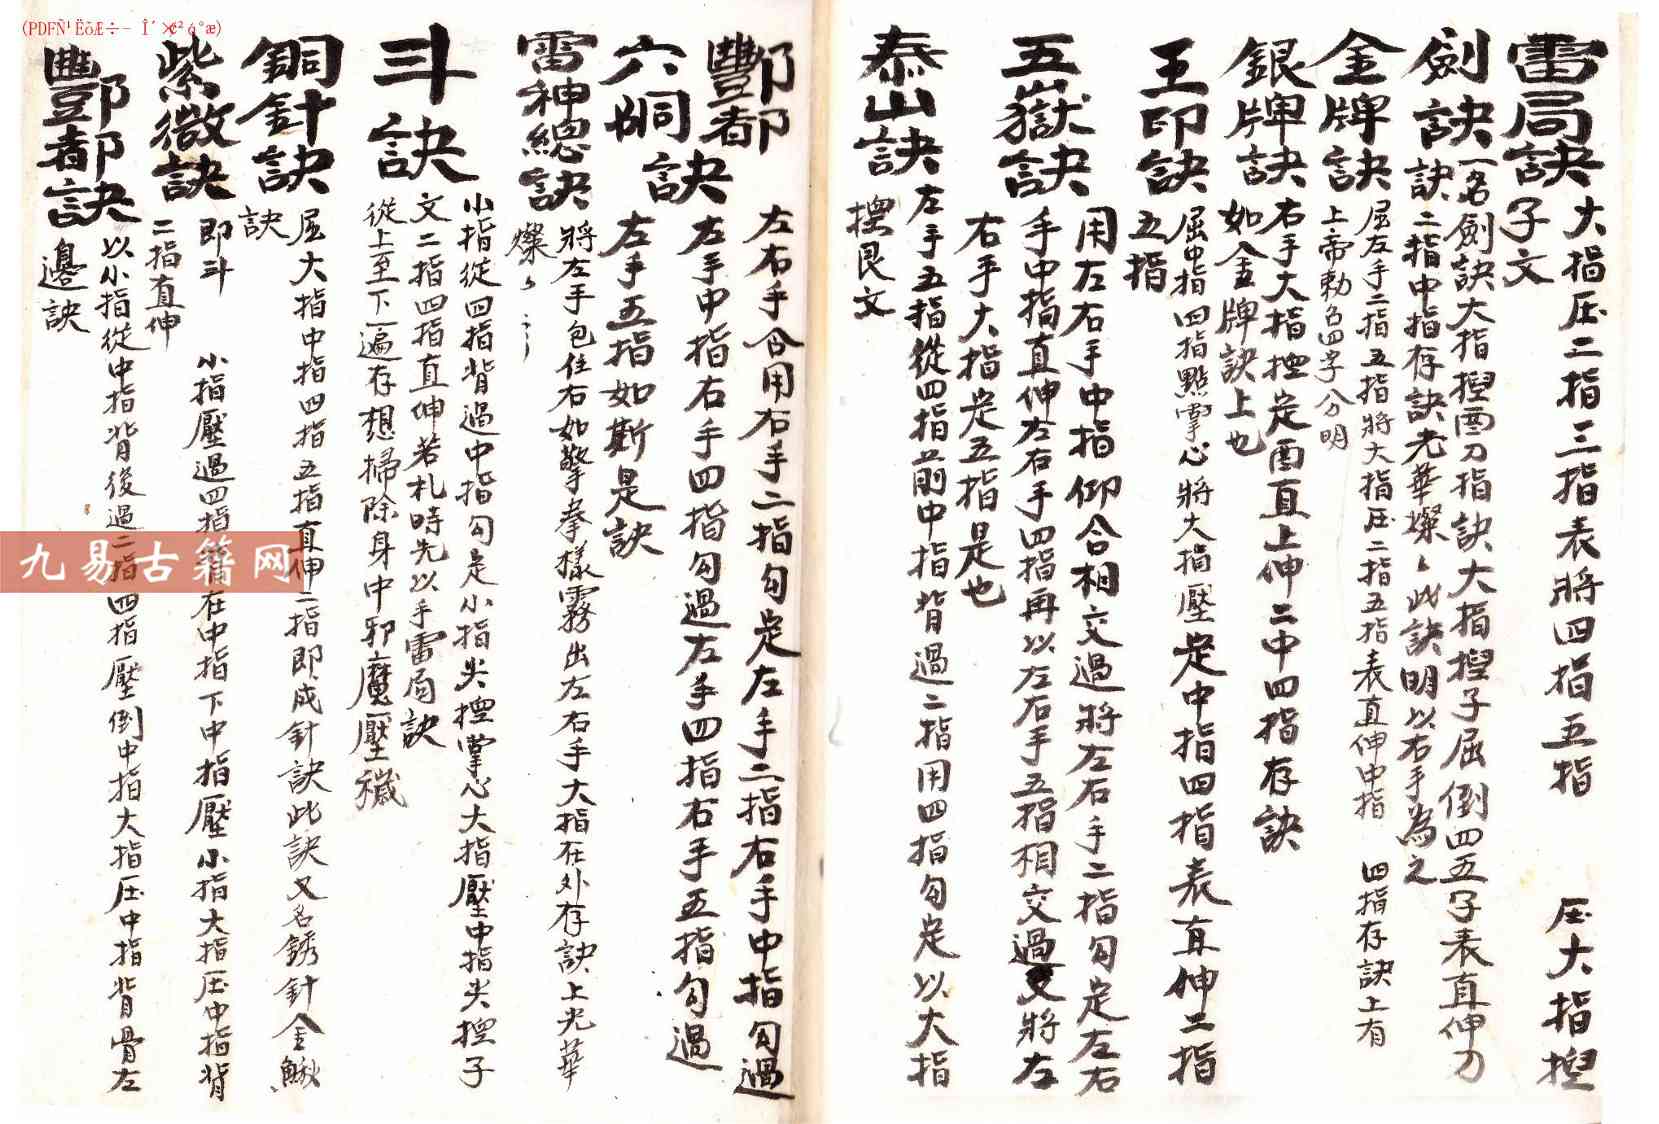 雷局訣
大指压二指三指表將四指五指 压大指揑
子文
劍訣
一名劍訣大指揑酉刀指訣大指揑子屈倒四五子表直伸刀
訣二指中指存訣光華燦々此訣明以右手為之
金牌訣
屈左手二指五指將大指压二指五指表直伸中指 四指存訣上有
上帝勅召四字分明
銀牌訣
右手大指揑定酉直上伸二中四指存訣
如金牌訣上也
王印訣
屈中指四指點掌心將大指壓定中指四指表直伸二指
五指
五嶽訣
用左右手中指仰合相交過將左右手二指勾定左右
手中指直伸左右手四指再以左右手五指相交過又將左
右手大指定五指是也
泰山訣
左手五指從四指节前中指背過二指用四指勾定以大指
揑艮文
酆都
左右手合用右手二指勾定左手二指右手中指勾過
六洞訣
左手中指右手四指勾過左手四指右手五指勾過
左手五指如斯是訣
雷神總訣
將左手包住右如擎拳樣霧出左右手大指在外存訣上光華
燦々
斗訣
小指從四指背過中指勾定小指尖揑掌心大指壓中指尖揑子
文二指四指直伸若札時先以手雷局訣
從上至下一遍存想掃除身中邪魔壓穢
銅針訣
屈大指中指四指五指直伸二指即成針訣此訣又名銹針金鰍
訣
紫微訣
即斗 小指壓過四指背在中指下中指壓小指大指压中指背
二指直伸
酆都訣
以小指從中指背後過二指四指壓倒中指大指压中指背骨左
邊訣
九易古籍网